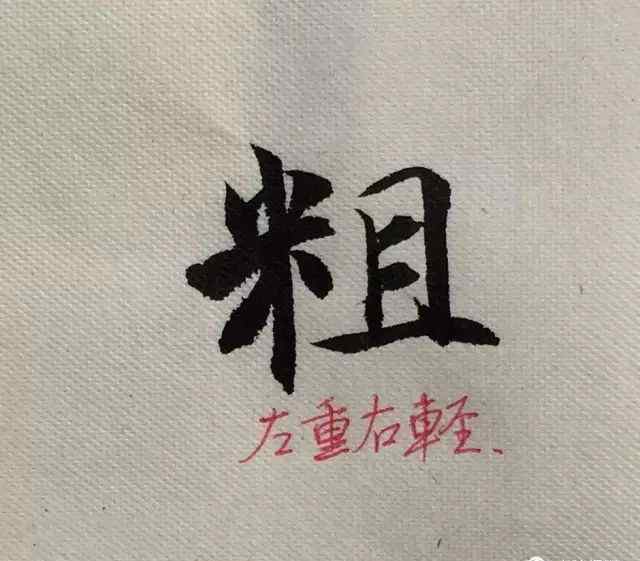 粗
左重右軽、